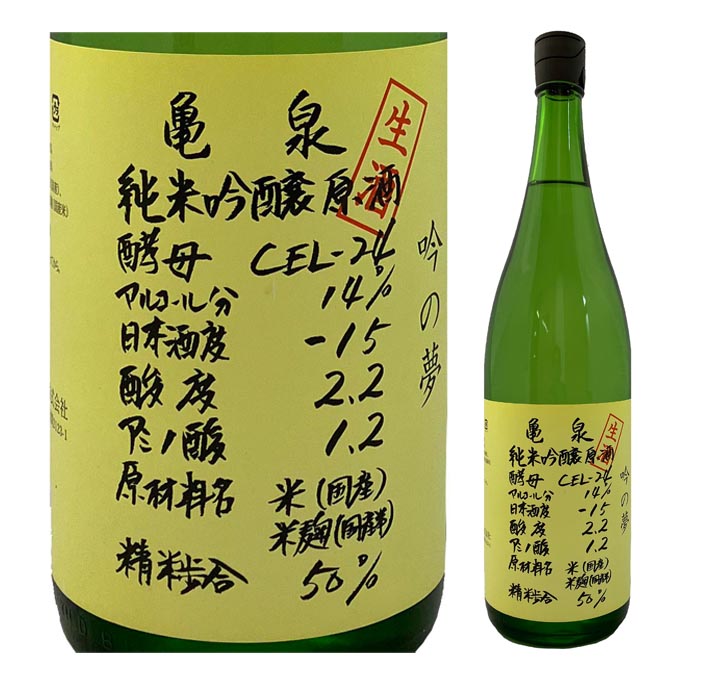 亀泉
生酒
純米吟醸原酒
酵母 CEL-24
アルコール分 14%
日本酒度 -15
酸度 2.2
アミノ酸 1.2
原材料名 米(国産)
米麹(国産米)
精米歩合 50%
吟の夢
式会社
亀泉
生酒
純米吟醸原酒
酵母 CEL-24
アルコール分 14%
日本酒度 -15
酸度 2.2
アミノ酸 1.2
原材料名 米(国産)
米麹(国産米)
精米歩合 50%
吟の夢